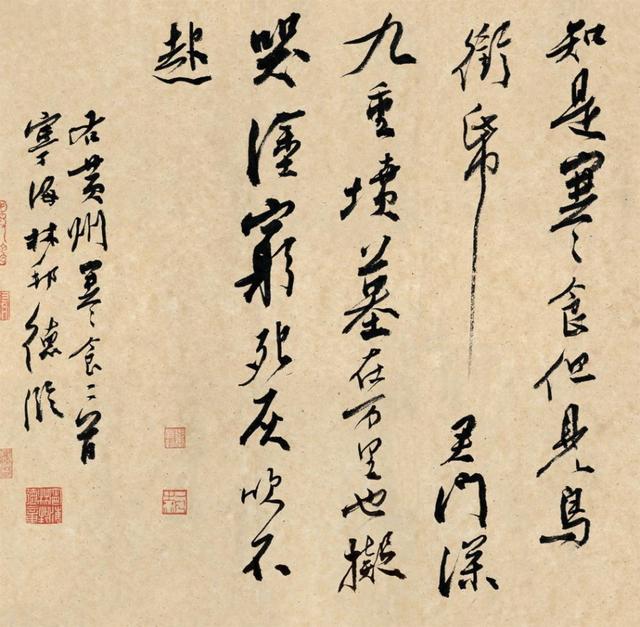 知是寒食但見烏
銜帋君門深
九重墳墓在万里也擬
哭塗窮死灰吹不
起
右黄州寒食二首
寧海林邦德臨